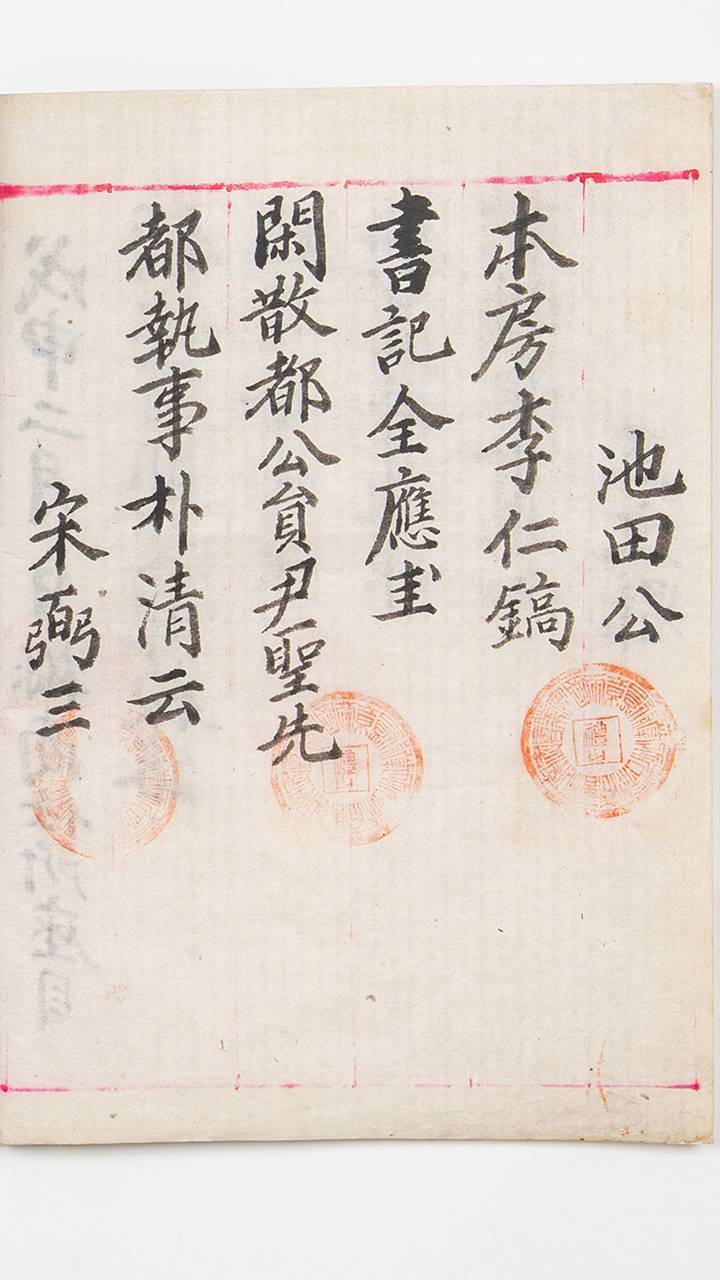 池田公
本房李仁鎬
書記全應圭
閑散都公員尹聖先
都執事朴清云
宋弼三